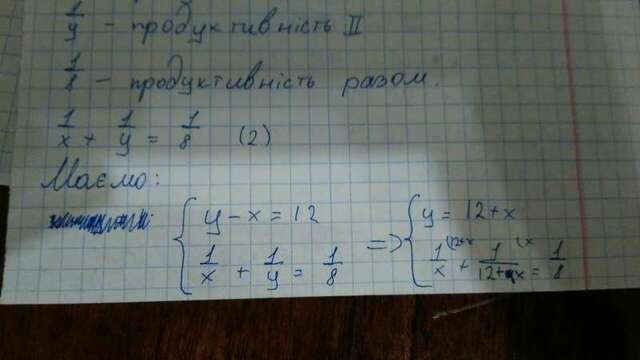 1/y - продуктивність II
1/8 - продуктивність разом.
1/x + 1/y = 1/8 (2)
Маємо:
{ y - x = 12 => { y = 12 + x
1/x + 1/y = 1/8 1/x + 1/12+x = 1/8